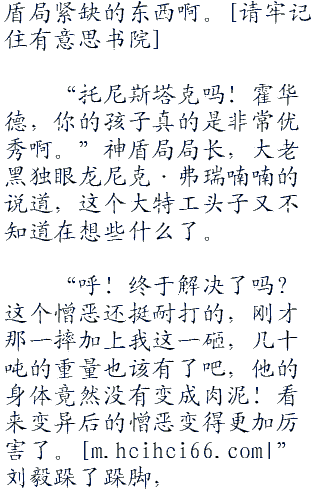 盾局紧缺的东西啊。[请牢记
住有意思书院]
“托尼斯塔克吗！霍华
德，你的孩子真的是非常优
秀啊。”神盾局局长，大老
黑独眼龙尼克·弗瑞喃喃的
说道，这个大特工头子又不
知道在想些什么了。
“呼！终于解决了吗？
这个憎恶还挺耐打的，刚才
那一摔加上我这一砸，几十
吨的重量也该有了吧，他的
身体竟然没有变成肉泥！看
来变异后的憎恶变得更加厉
害了。[m.hcihci66.com|”
刘毅跺了跺脚，